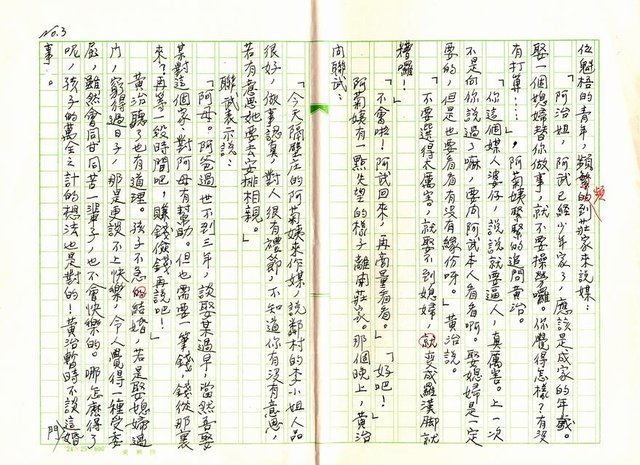 No.3
位魁梧的青年,頻繁的到莊家來說媒:
頻
「阿治姐,阿武已經少年家了,應該是成家的年載。
娶一個媳婦替你做事,就不要操勞囉。你覺得怎樣?有沒
有打算…」,阿菊姨緊緊的追問黃治。
「你這個媒人婆仔,說說就要逼人,真厲害。上一次
不是向你說過了嘛,要問阿武本人看看啊。娶媳婦是一定
要的,但是也要看看有沒有緣份呀。」黃治說。
「不要選得太厲害。就娶不到媳婦,就變成羅漢腳就
糟囉!」
「不會啦!阿武回來,再商量看看。」「好吧!」
阿菊姨有一點失望的樣子離開莊家。那個晚上,黃治
向聯武:
「今天隔壁庄的阿菊姨來作媒,說鄰村的李小姐人品
很好,做事認真,對人很有禮節,不知道你有沒有意思,
若有意思她要去安排相親。」
聯武表示說:
「阿母。阿爸過世不到三年,談娶某過早,當然喜娶
某對這個家,對阿母有幫助。但也需要一筆錢,錢從那裏
來?再等一段時間吧,賺錢儉錢再說吧!」
黃治聽了也有道理。孩子不急的結婚,若是娶媳婦過
門,窮得過日子,那是更說不上快樂,令人覺得一種受委
屈,雖然會同甘同苦一輩子,也不會快樂的。哪怎麼得了
呢,孩子的萬全之計的想法也是對的!黃治暫時不談這婚
事。
門
24×25=600